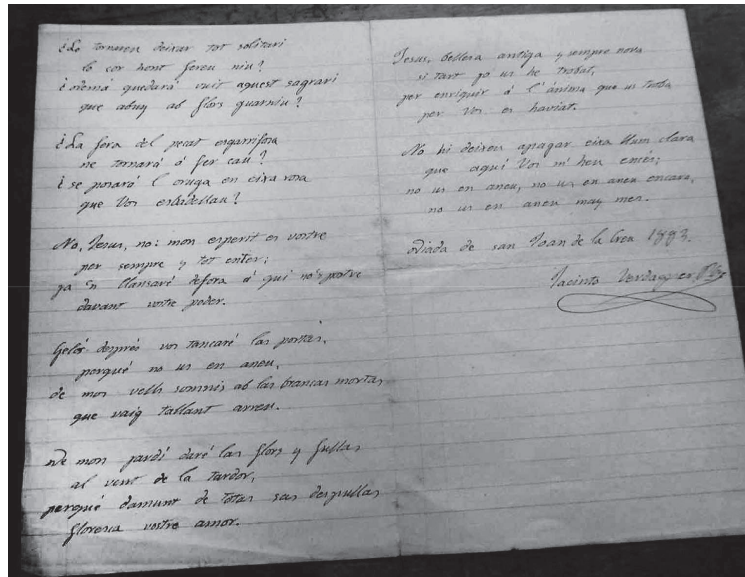 ¿Lo tornareu deixar tot solitari
lo cor hont fereu niu?
¿demá quedará vuit aquest sagrari
que abuy ab flors guarniu?
¿La fera del pecat esgarrifosa
ne tornará á fer cau?
¿se posará l' oruga en eixa rosa
que Vos esbadellau?
No, Jesus, no: mon esperit es vostre
per sempre y tot enter;
ja 'n llansaré defora á qui no's postre
davant vostre poder.
Gelós després vos tancaré las portas,
perqué no us en aneu,
de mos vells somnis ab las brancas mortas
que vaig tallant arreu.
De mon jardí daré las flors y fullas
al vent de la tardor,
perqué damunt de totas sas despullas
floresca vostre amor.
Jesus, bellesa antiga y sempre nova
si tart jo us he trobat,
per enriquir á l' ánima que us troba
per Vos es haviat.
No hi deixeu apagar eixa llum clara
que aquí Vos m' heu encés;
no us en aneu, no us en aneu encara,
no us en aneu may mes.
Diada de san Joan de la Creu 1883.
Jacinto Verdaguer, Pbre